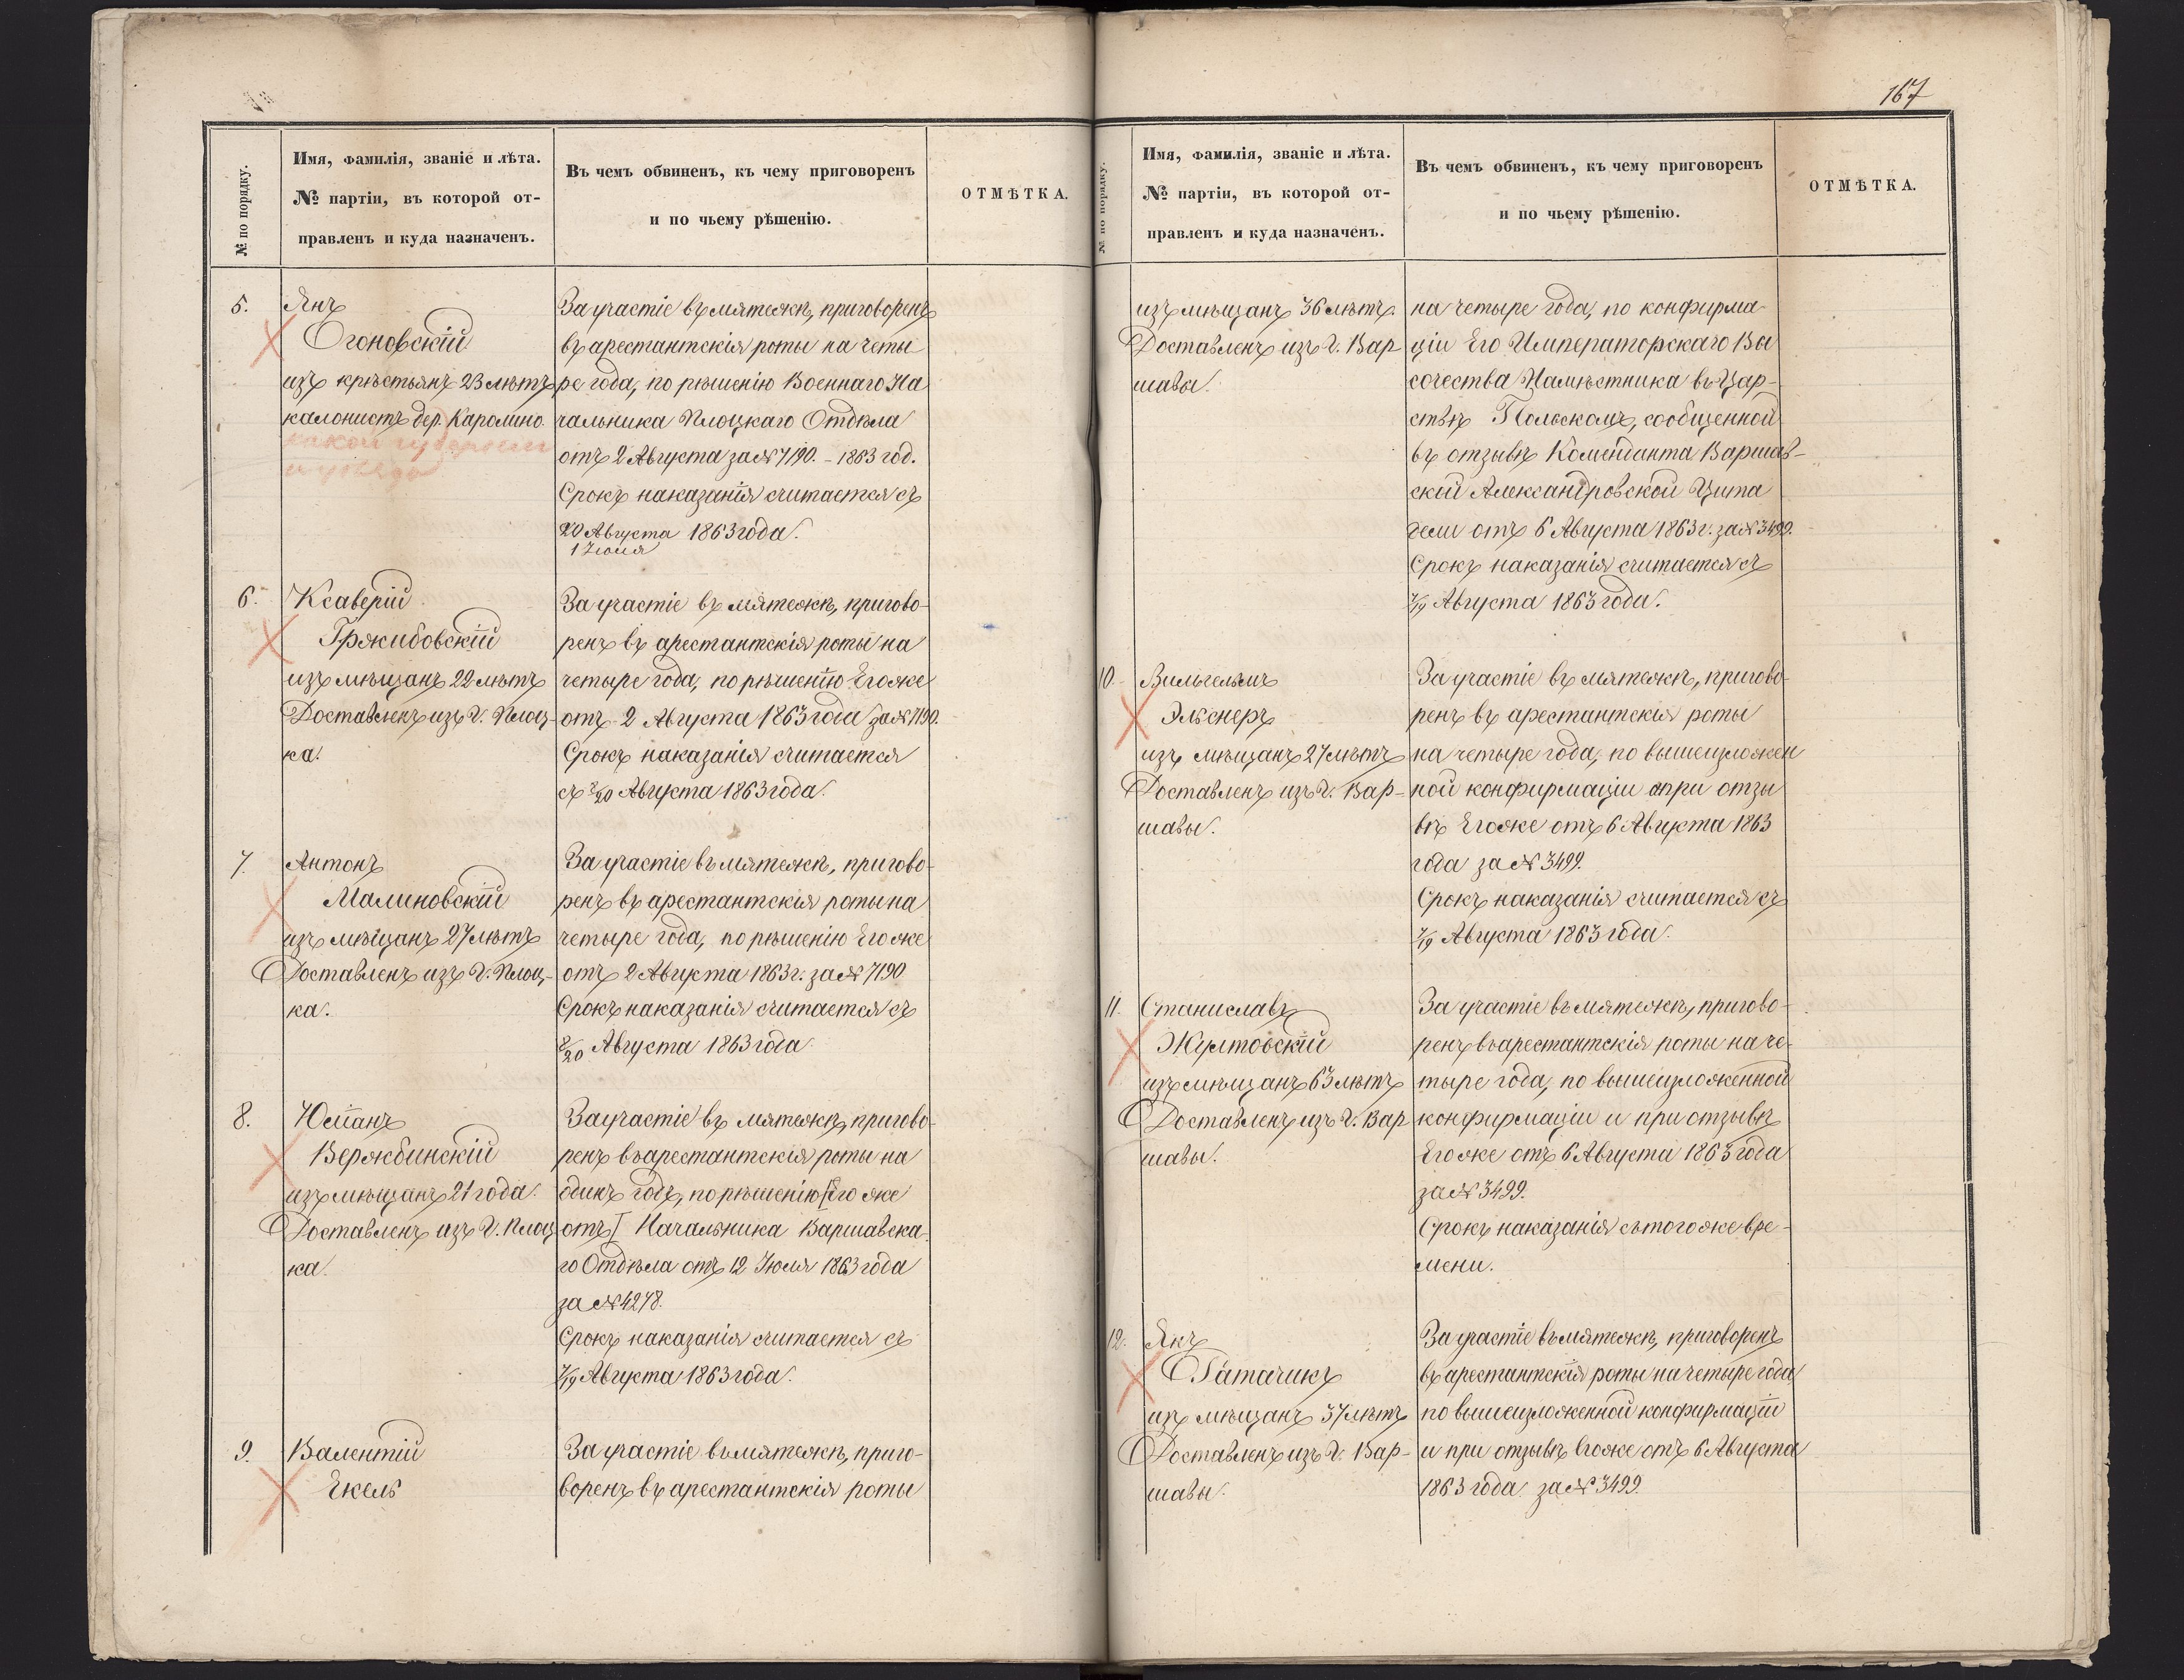 № по порядку.
Имя, фамилія, званіе и лѣта.
№ партіи, въ которой от-
правленъ и куда назначенъ.
Въ чемъ обвиненъ, къ чему приговоренъ
и по чьему рѣшенію.
ОТМѢТКА.
5.
Янъ
Огоновскій
изъ крѣстьянъ 23 лѣтъ
калонистъ дер. Каролино.
какой губерніи
и уѣзда
За участіе въ мятежѣ, приговоренъ
въ арестантскія роты на четы
ре года, по рѣшенію Военнаго На
чальника Плоцкаго Отдѣла
отъ 2 Августа за № 7190. – 1863 год.
Срокъ наказанія считается съ
20 Августа 1863 года.
1 Іюля
6.
Ксаверій
Гржибовскій
изъ мѣщанъ 22 лѣтъ
Доставленъ изъ Г. Плоц-
ка.
За участіе въ мятежѣ, пригово-
ренъ въ арестантскія роты на
четыре года, по рѣшенію Егоже
отъ 2 Августа 1863 года за № 7190.
Срокъ наказанія считается
съ 8/20 Августа 1863 года.
7.
Антонъ
Малиновскій
изъ мѣщанъ 27 лѣтъ
Доставленъ изъ Г. Плоц-
ка.
За участіе въ мятежѣ, пригово-
ренъ въ арестантскія роты на
четыре года, по рѣшенію Егоже
отъ 2 Августа 1863 г. за № 7190
Срокъ наказанія считается съ
8/20 Августа 1863 года.
8.
Юліанъ
Вержбинскій
изъ мѣщанъ 21 года.
Доставленъ изъ Г. Плоц
ка.
За участіе въ мятежѣ, пригово-
ренъ въ арестантскія роты на
одинъ годъ, по рѣшенію [Его же
отъ] Начальника Варшавска-
го Отдѣла отъ 12 Іюля 1863 года
за № 4278.
Срокъ наказанія считается съ
7/19 Августа 1863 года.
9.
Валентій
Екель
За участіе въ мятежѣ, приго-
воренъ въ арестантскія роты
167
№ по порядку.
Имя, фамилія, званіе и лѣта.
№ партіи, въ которой от-
правленъ и куда назначенъ.
Въ чемъ обвиненъ, къ чему приговоренъ
и по чьему рѣшенію.
ОТМѢТКА.
изъ мѣщанъ 36 лѣтъ.
Доставленъ изъ Г. Вар
шавы.
на четыре года, по конфирма-
ціи Его Императорскаго Вы
сочества Намѣстника въ Цар-
ствѣ Польскомъ, сообщенной
въ отзывѣ Коменданта Варшав-
ской Александровской Цита
дели отъ 6 Августа 1863 г. за № 3499.
Срокъ наказанія считается съ
7/19 Августа 1863 года.
10.
Вильгельмъ
Эльснеръ
изъ мѣщанъ 27 лѣтъ
Доставленъ изъ Г. Вар-
шавы.
За участіе въ мятежѣ, пригово-
ренъ въ арестантскія роты
на четыре года, по вышеизложен
ной конфирмаціи при отзы
вѣ Егоже отъ 6 Августа 1863
года за № 3499.
Срокъ наказанія считается съ
7/19 Августа 1863 года.
11.
Станиславъ
Жултовскій
изъ мѣщанъ 63 лѣтъ
Доставленъ изъ Г. Вар
шавы.
За участіе въ мятежѣ, пригово-
ренъ въ арестантскія роты на че-
тыре года, по вышеизложенной
конфирмаціи и при отзывѣ
Егоже отъ 6 Августа 1863 года
за № 3499.
Срокъ наказанія съ тогоже вре-
мени.
12.
Янъ
Гатачикъ
изъ мѣщанъ 37 лѣтъ
Доставленъ изъ Г. Вар-
шавы.
За участіе въ мятежѣ, приговоренъ
въ арестантскія роты на четыре года
по вышеизложенной конфирмаціи
и при отзывѣ Егоже отъ 6 Августа
1863 года за № 3499.